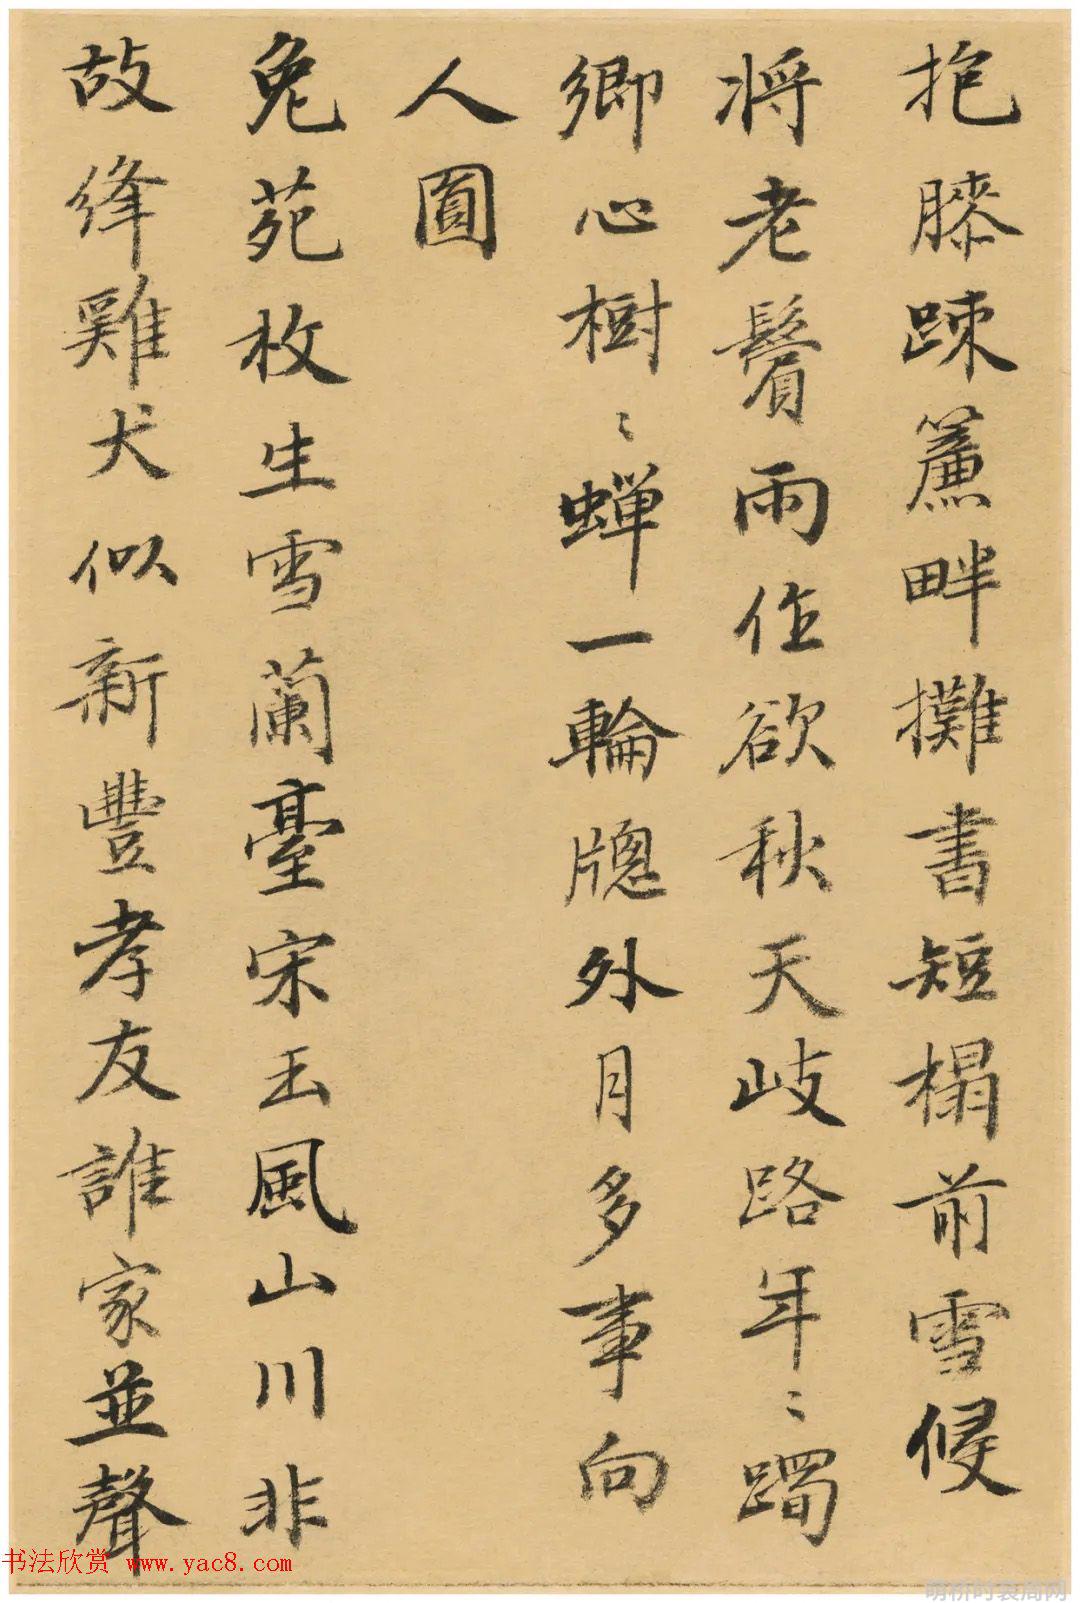 抱膝踈簾畔攤書短榻前雪侵
将老鬢雨作欲秋天岐路年〻躅
鄉心樹〻蟬一輪牕外月多事向
人圓
兔苑枚生雪蘭臺宋玉風山川非
故絳雞犬似新豐孝友誰家並聲
书法欣赏 www.yac8.com
萌桥时装周网